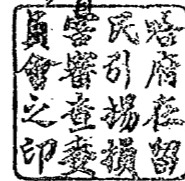 哈府在留
民引揚損
害審查委
員會之印